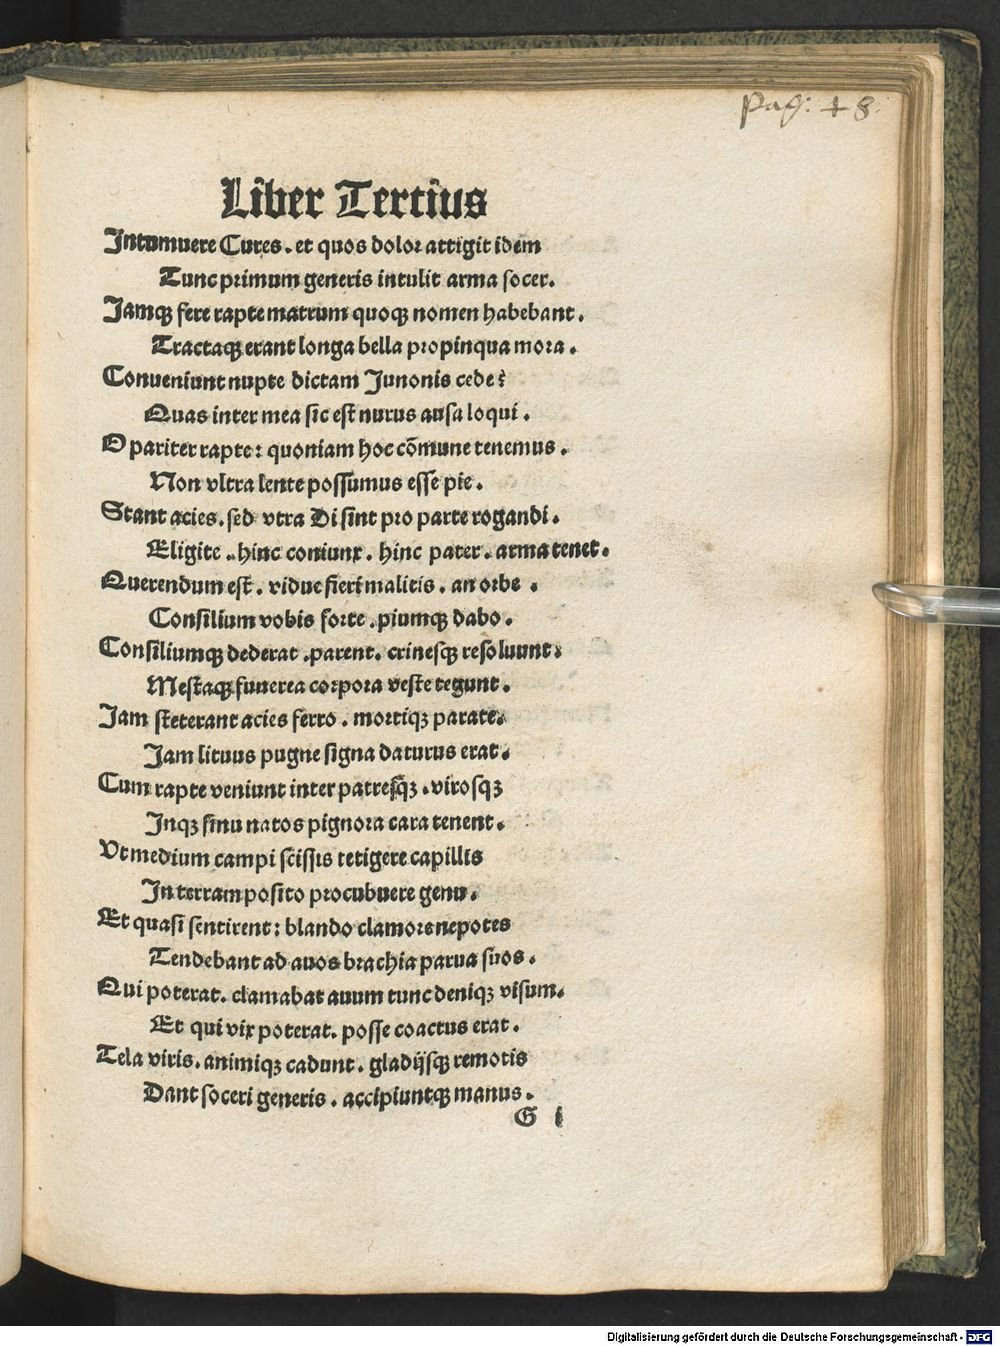 Pag: 48.
Liber Tertius
Intumuere Cures. et quos dolor attigit idem
Tunc primum generis intulit arma socer.
Jamqꝫ fere rapte matrum quoqꝫ nomen habebant.
Tractaqꝫ erant longa bella propinqua mora.
Conueniunt nupte dictam Junonis cede:
Quas inter mea sic est nurus ausa loqui.
O pariter rapte: quoniam hoc cōmune tenemus.
Non vltra lente possumus esse pie.
Stant acies. sed vtra Di sint pro parte rogandi.
Eligite. hinc coniunx. hinc pater. arma tenet.
Querendum est. vidue fieri malitis. an orbe.
Consilium vobis forte. piumqꝫ dabo.
Consiliumqꝫ dederat. parent. crinesqꝫ resoluunt:
Mestaqꝫ funerea corpora veste tegunt.
Jam steterant acies ferro. mortiqꝫ parate.
Jam lituus pugne signa daturus erat.
Cum rapte veniunt inter patresqꝫ. virosqꝫ
Inqꝫ sinu natos pignora cara tenent.
Vt medium campi scissis tetigere capillis
In terram posito procubuere genu.
Et quasi sentirent: blando clamore nepotes
Tendebant ad auos brachia parua suos.
Qui poterat. clamabat auum tunc deniqꝫ visum.
Et qui vix poterat. posse coactus erat.
Tela viris. animiqꝫ cadunt. gladijsqꝫ remotis
Dant soceri generis. accipiuntqꝫ manus.
G i
Digitalisierung gefördert durch die Deutsche Forschungsgemeinschaft - DFG